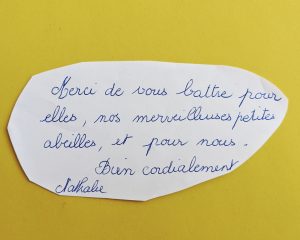 Merci de vous battre pour
elles, nos merveilleuses petites
abeilles, et pour nous.
Bien cordialement
Nathalie